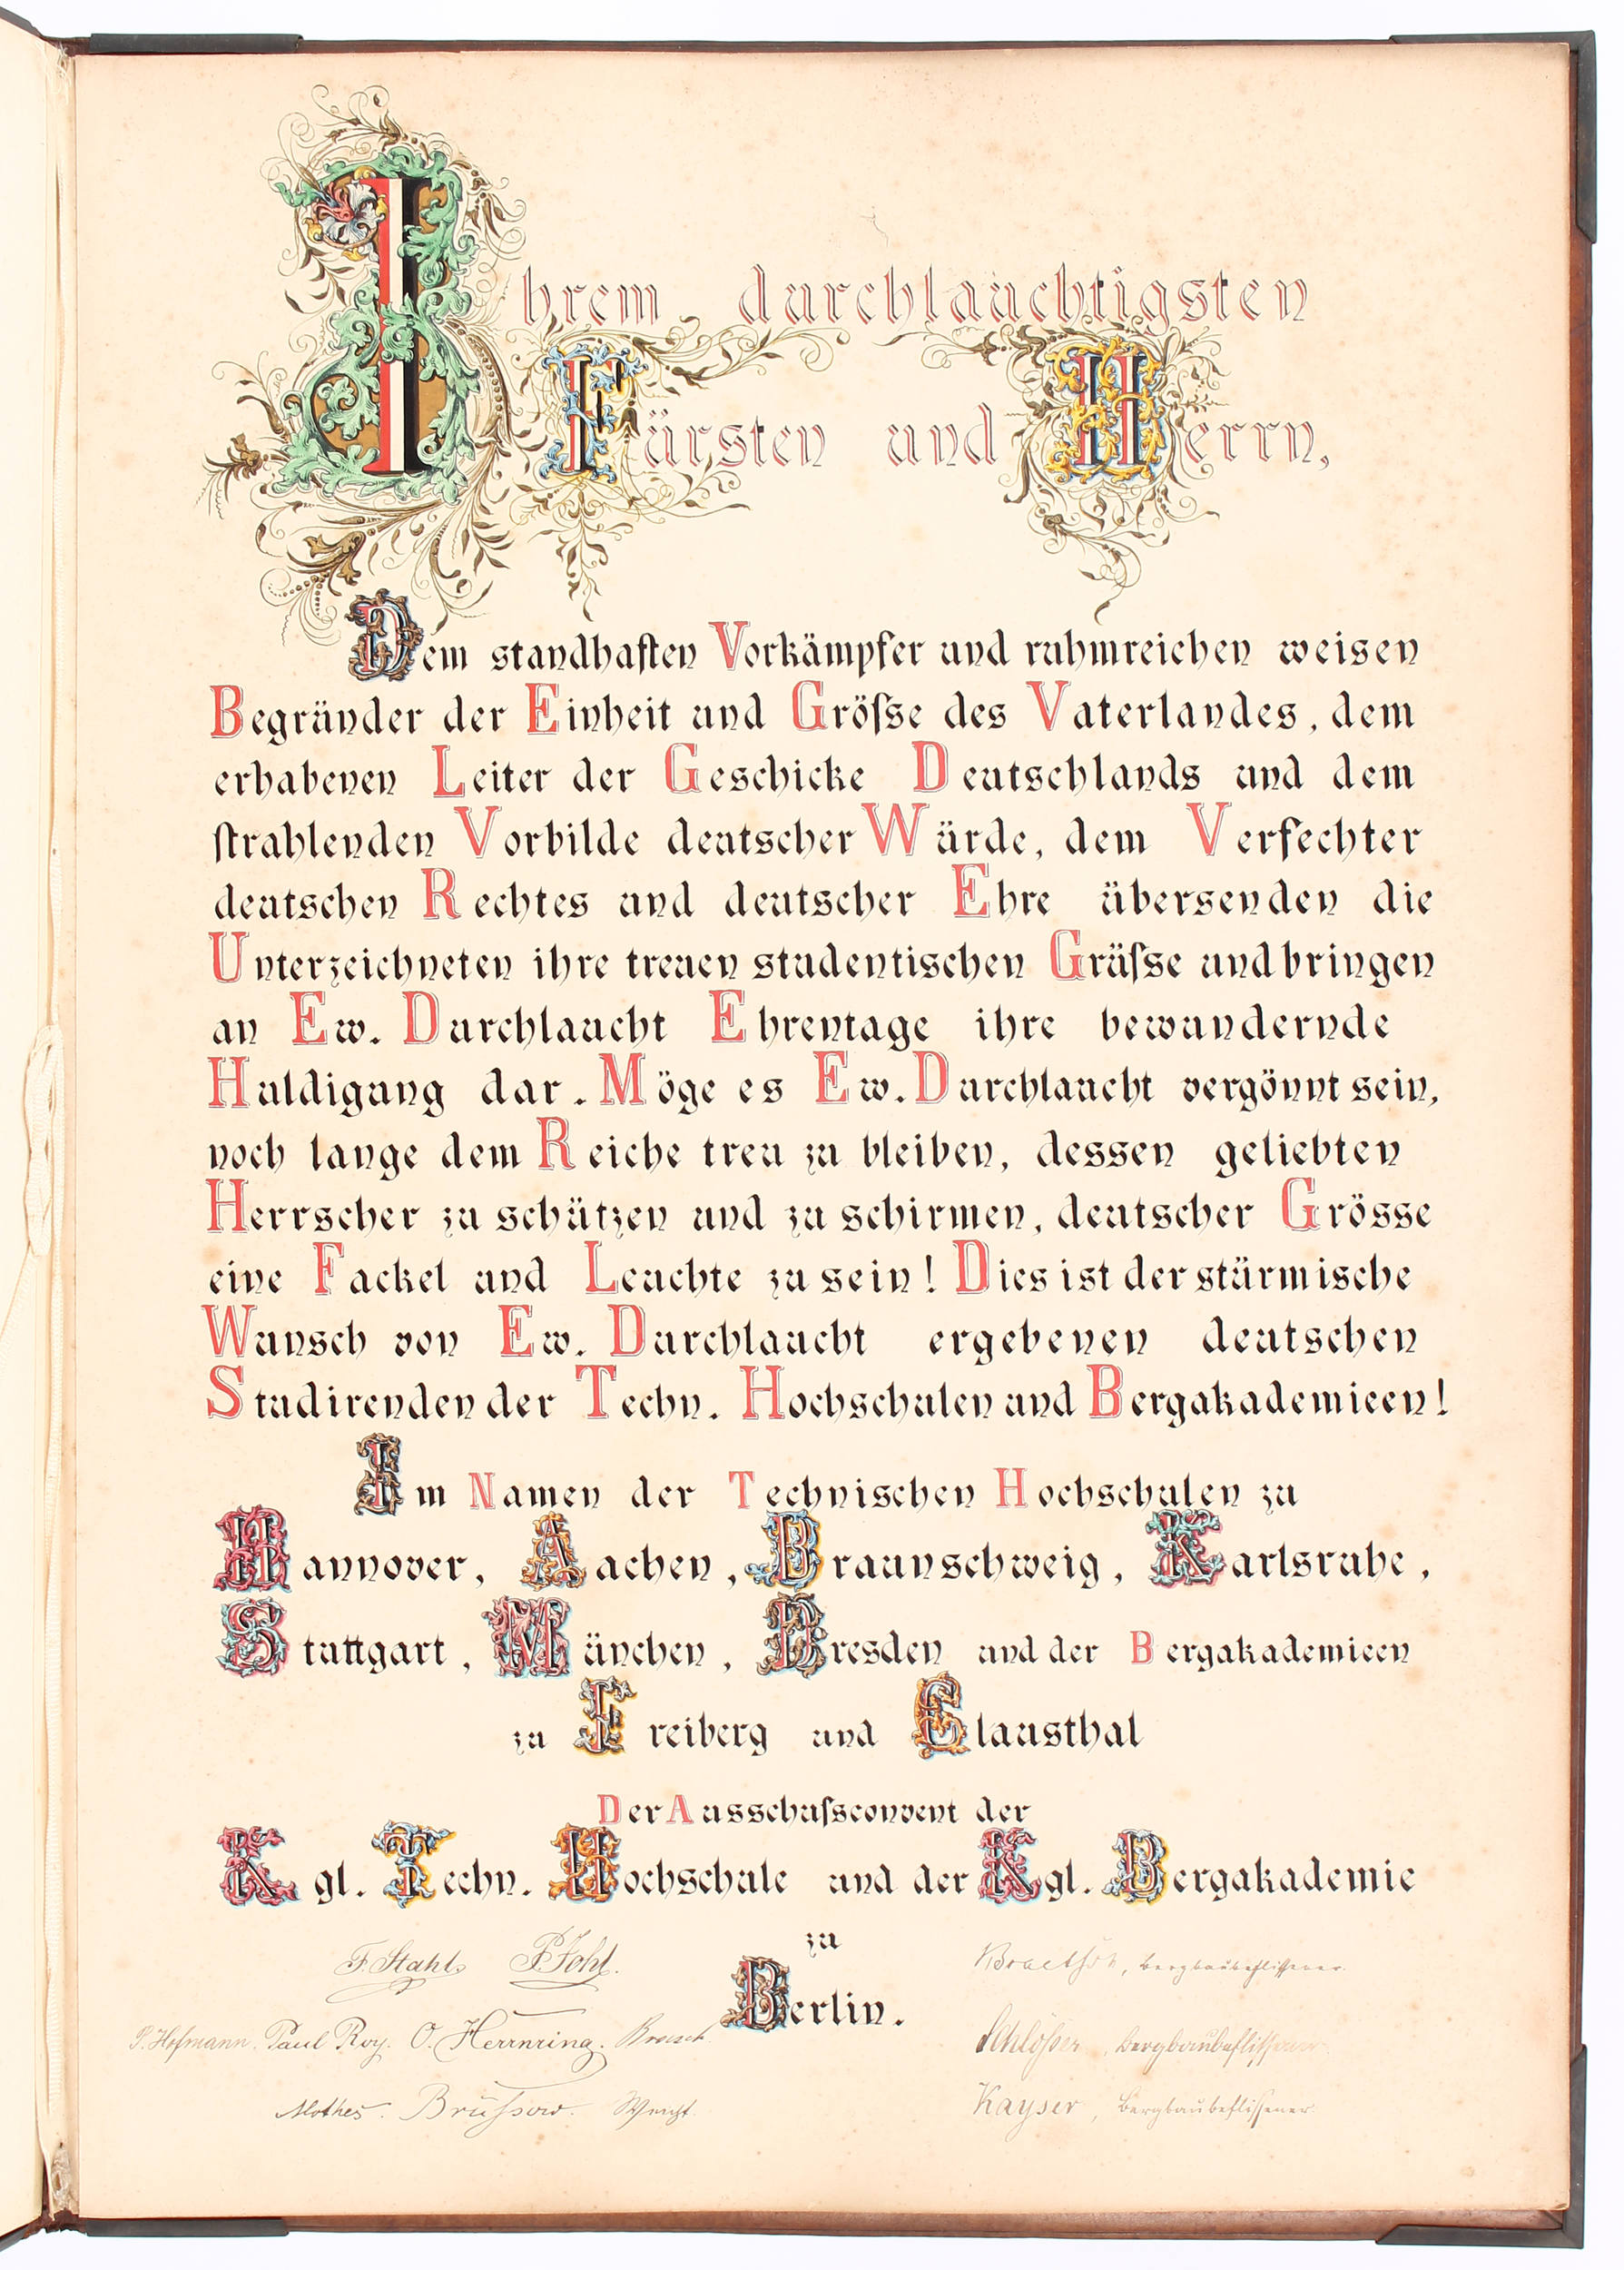 Ihrem durchlauchtigsten
Fürsten und Herrn,
Dem standhaften Vorkämpfer und ruhmreichen weisen
Begründer der Einheit und Größe des Vaterlandes, dem
erhabenen Leiter der Geschicke Deutschlands und dem
strahlenden Vorbilde deutscher Würde, dem Verfechter
deutschen Rechtes und deutscher Ehre übersenden die
Unterzeichneten ihre treuen studentischen Grüße und bringen
an Ew. Durchlaucht Ehrentage ihre bewundernde
Huldigung dar. Möge es Ew. Durchlaucht vergönnt sein,
noch lange dem Reiche treu zu bleiben, dessen geliebten
Herrscher zu schützen und zu schirmen, deutscher Grösse
eine Fackel und Leuchte zu sein! Dies ist der stürmische
Wunsch von Ew. Durchlaucht ergebenen deutschen
Studirenden der Techn. Hochschulen und Bergakademieen!
Im Namen der Technischen Hochschulen zu
Hannover, Aachen, Braunschweig, Karlsruhe,
Stuttgart, München, Dresden und der Bergakademieen
zu Freiberg und Clausthal
Der Ausschußconvent der
Kgl. Techn. Hochschule und der Kgl. Bergakademie
zu
Berlin.
F. Stahl. P. Johl.
P. Hofmann. Paul Roy. O. Herrnring.
Mothes. Brüssow.
Bergbaubeflissener.
Schlösser, Bergbaubeflissener
Kayser, Bergbaubeflissener